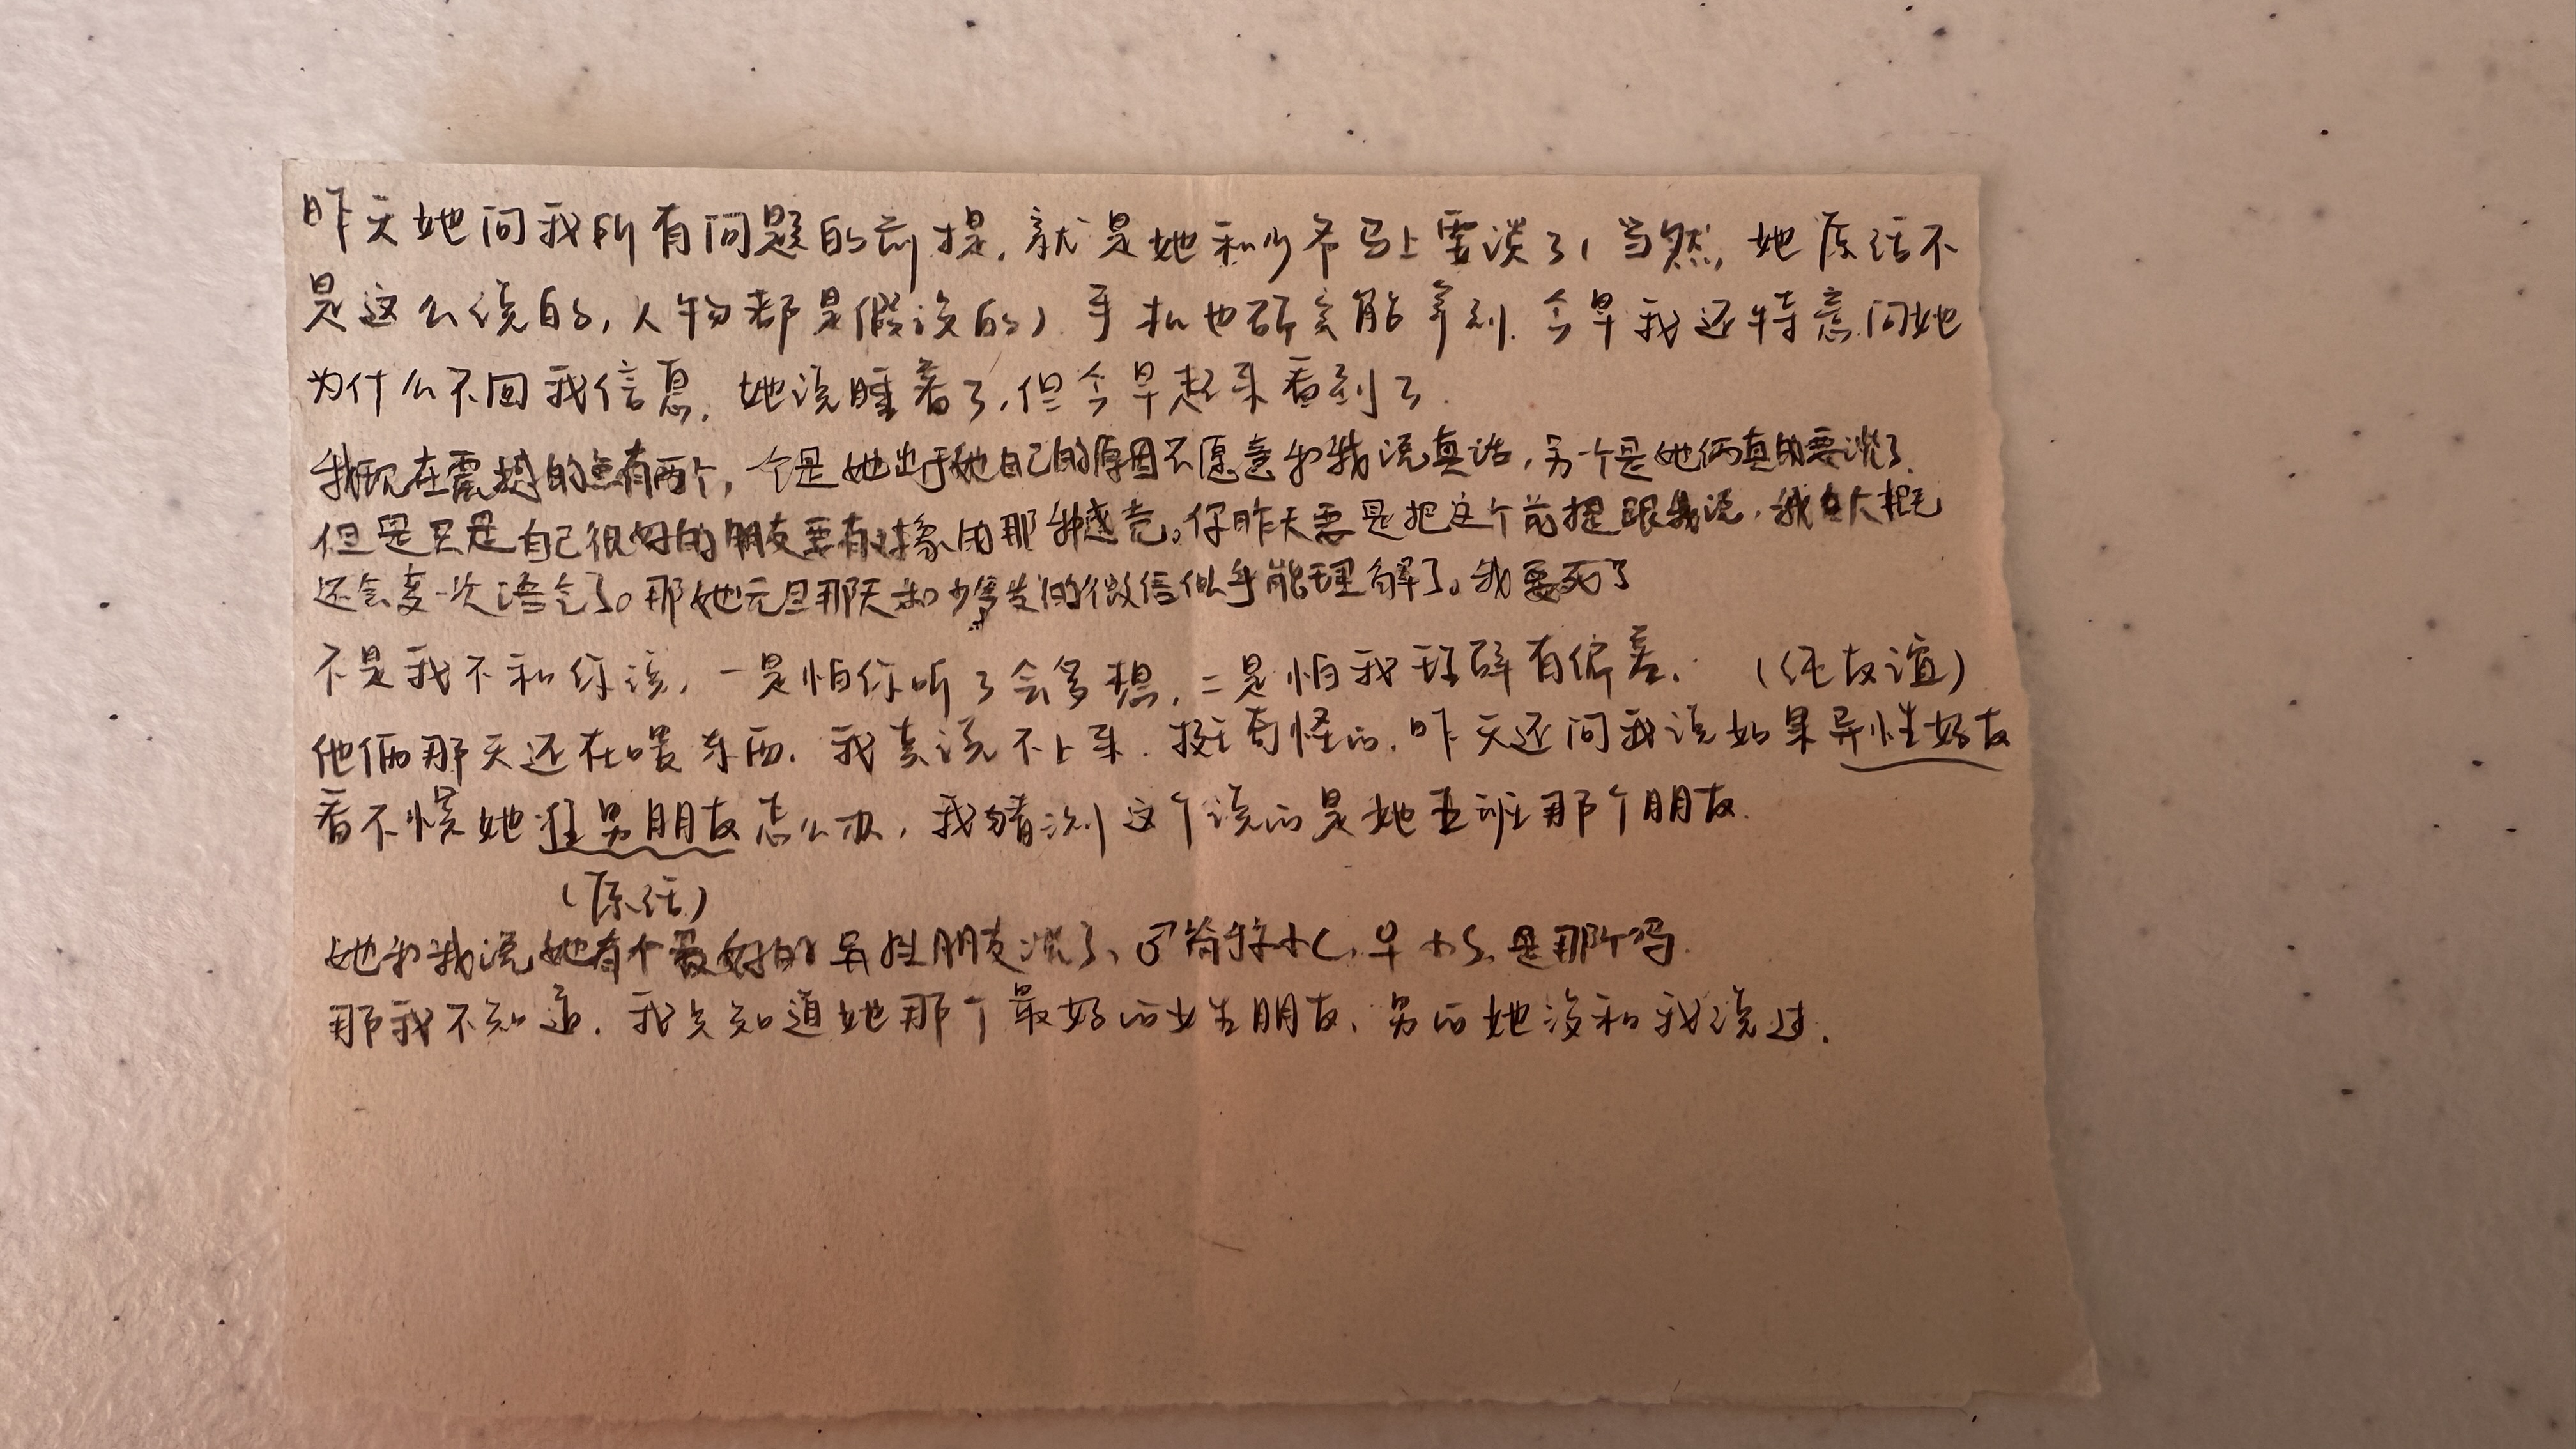 昨天她问我所有问题的前提,就是她和少爷马上要谈了(当然,她原话不
是这么说的,人物都是假设的)手机也确实能拿到.今早我还特意问她
为什么不回我信息,她说睡着了,但今早起来看到了.
我现在震撼的点有两个,一个是她出于她自己的原因不愿意和我说真话,另一个是她俩真的要谈了.
但是只是自己很好的朋友要有对象的那种感觉。你昨天要是把这个前提跟我说,我大概
还会变一次语气了。那她元旦那天和少爷发的微信似乎能理解了。我要死了
不是我不和你说,一是怕你听了会多想,二是怕我理解有偏差. (纯友谊)
他俩那天还在喂东西.我真说不上来.挺奇怪的.昨天还问我说如果异性好友
看不惯她现男朋友怎么办,我猜测这个说的是她五班那个朋友.
(原话)
她和我说她有个最好的异性朋友谈了、是那个吗
那我不知道.我只知道她那个最好的女生朋友、男的她没和我说过.